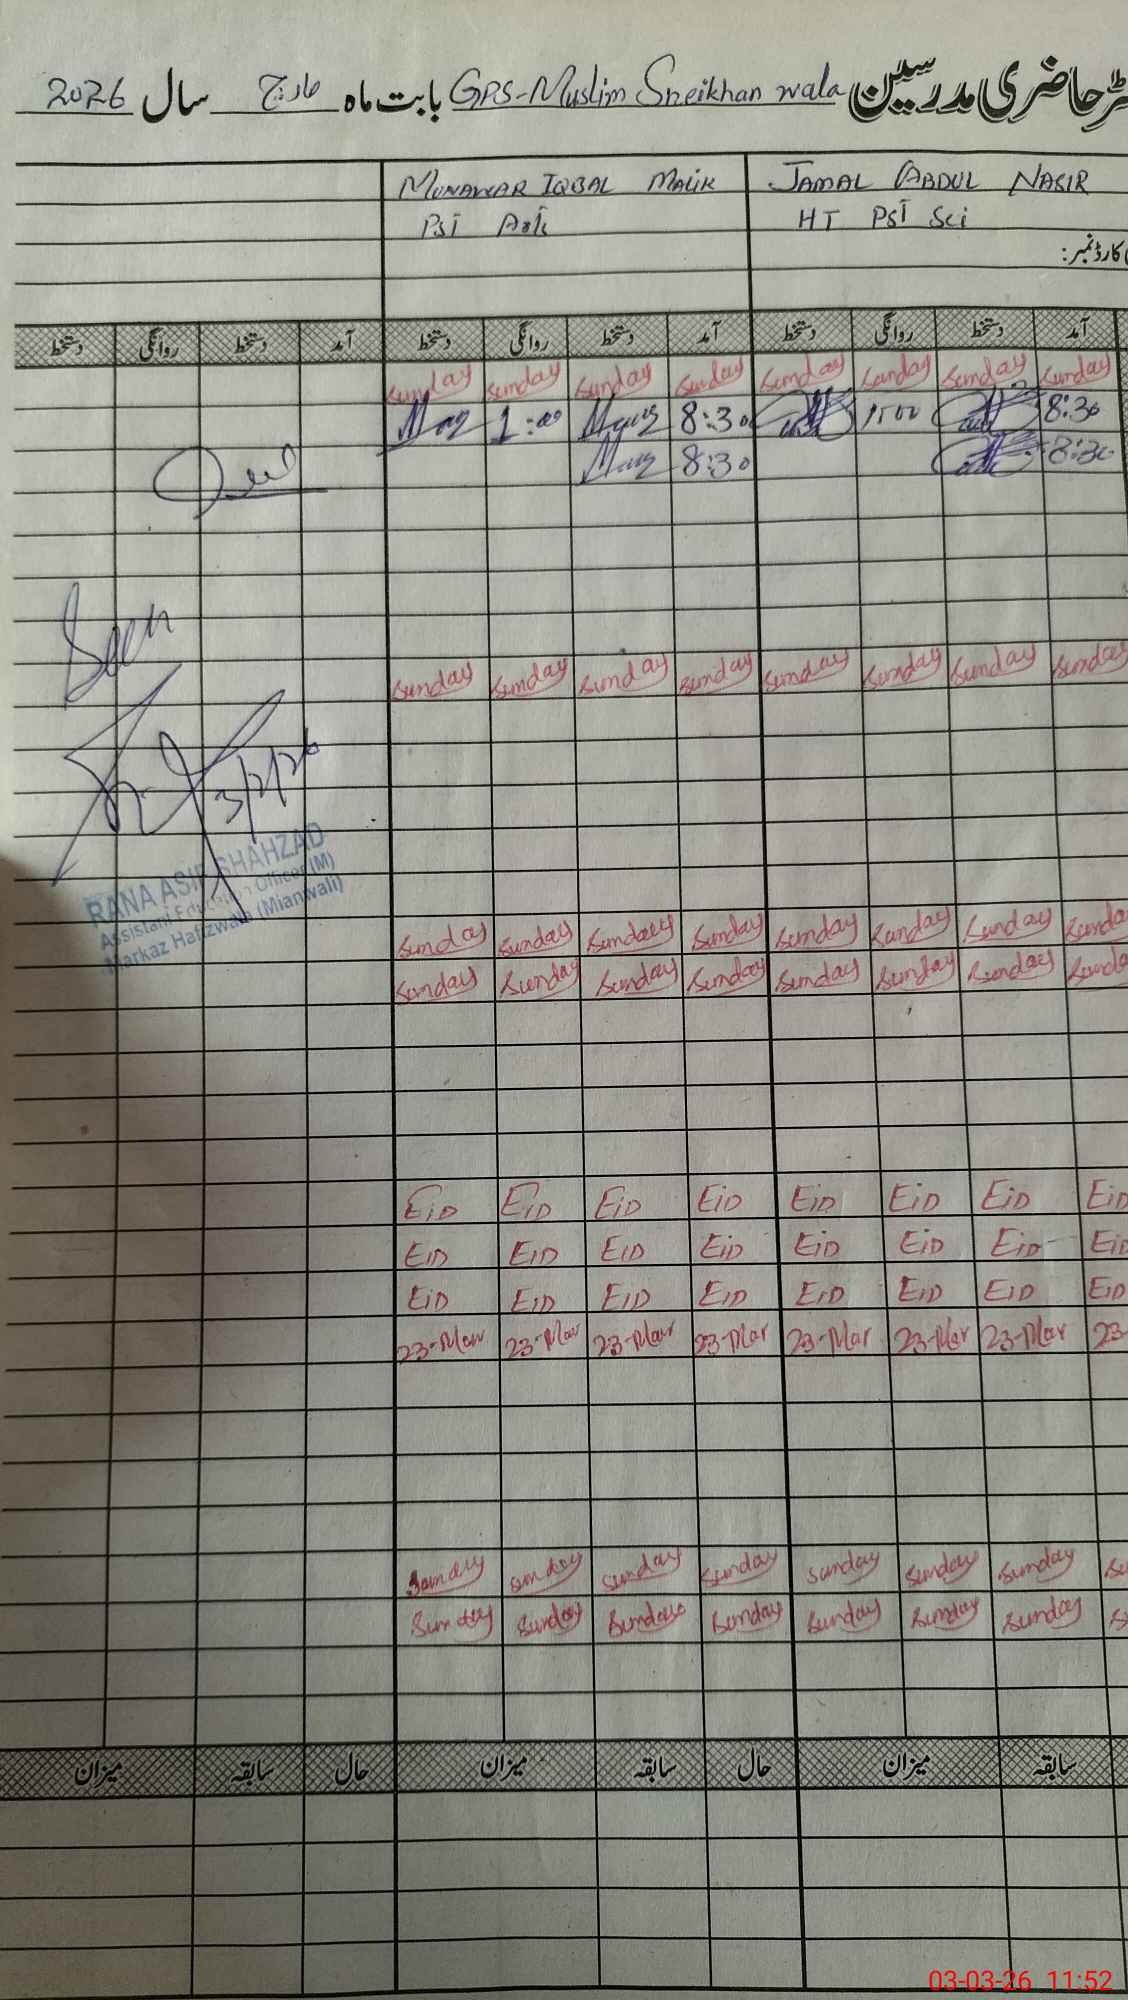 رجسٹر حاضری مدرسین GPS-Muslim Sheikhan wala بابت ماہ مارچ سال 2026
JAMAL ABDUL NASIR MUNAWAR IQBAL MALIK
HT PST Sci PST Arts
کارڈ نمبر:
آمد دستخط روانگی دستخط آمد دستخط روانگی دستخط آمد دستخط روانگی دستخط
Sunday Sunday Sunday Sunday Sunday Sunday Sunday Sunday
8:30 1:00 8:30 1:00
8:30 8:30
Sunday Sunday Sunday Sunday Sunday Sunday Sunday Sunday
Seen
3/2/26
RANA ASIF SHAHZAD
Assistant Education Officer (M)
Markaz Hafizwala (Mianwali)
Sunday Sunday Sunday Sunday Sunday Sunday Sunday Sunda
Sunday Sunday Sunday Sunday Sunday Sunday Sunday Sunda
EiD EiD EiD EiD EiD EiD EiD EiD
EiD EiD EiD EiD EiD EiD EiD EiD
EiD EiD EiD EiD EiD EiD EiD EiD
23-Mar 23-Mar 23-Mar 23-Mar 23-Mar 23-Mar 23-Mar 23-
Sunday Sunday Sunday Sunday Sunday Sunday Sunday Su
Sunday Sunday Sunday Sunday Sunday Sunday Sunday S
سابقہ میزان حال سابقہ میزان حال سابقہ میزان
03-03-26 11:52